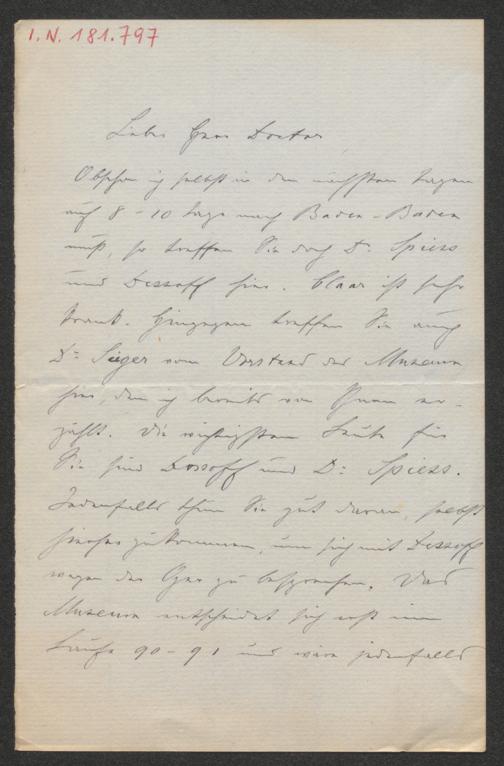 I.N. 181.797
Lieber Herr Doctor
Obschon ich selbst in den nächsten Tagen
auf 8 - 10 Tage nach Baden-Baden
muß, so treffen Sie doch Dr. Spiess
und Dessoff hier. Claar ist sehr
krank. Hingegen treffen Sie auch
Dr. Sieger vom Vorstand des Museum
hier, dem ich bereits von Ihnen er-
zählt. Die wichtigsten Leute für
Sie sind Dessoff und Dr. Spiess.
Jedenfalls thun Sie gut daran, selbst
hierher zu kommen, um sich mit Dessoff
wegen der Oper zu besprechen. Das
Museum entscheidet sich erst im
Laufe 90-91 und wäre jedenfalls